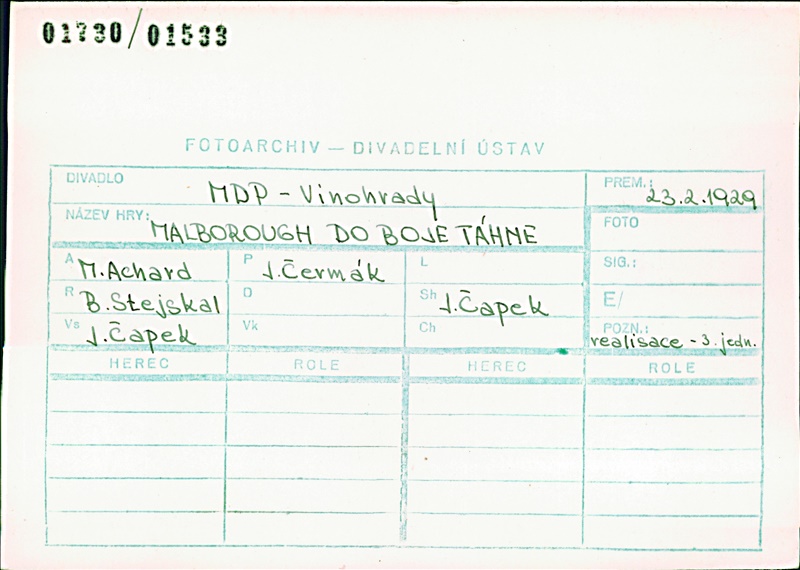 01730/01533
FOTOARCHIV — DIVADELNÍ ÚSTAV
DIVADLO MDP - Vinohrady PREM.: 23.2.1929
NÁZEV HRY: MALBOROUGH DO BOJE TÁHNE FOTO
A M. Achard P J. Čermák L SIG.:
R B. Stejskal D Sh J. Čapek E/
Vs J. Čapek Vk Ch POZN.: realisace - 3. jedn.
HEREC ROLE HEREC ROLE